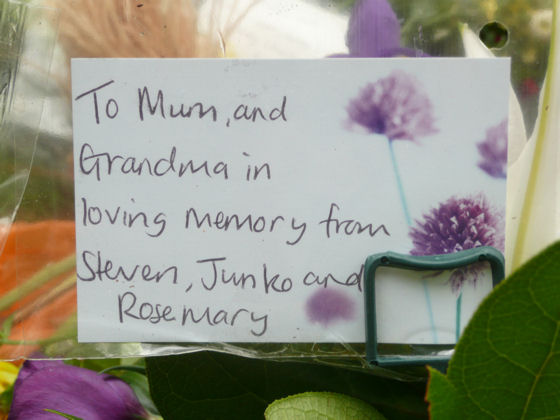 To Mum, and
Grandma in
loving memory from
Steven, Junko and
Rosemary